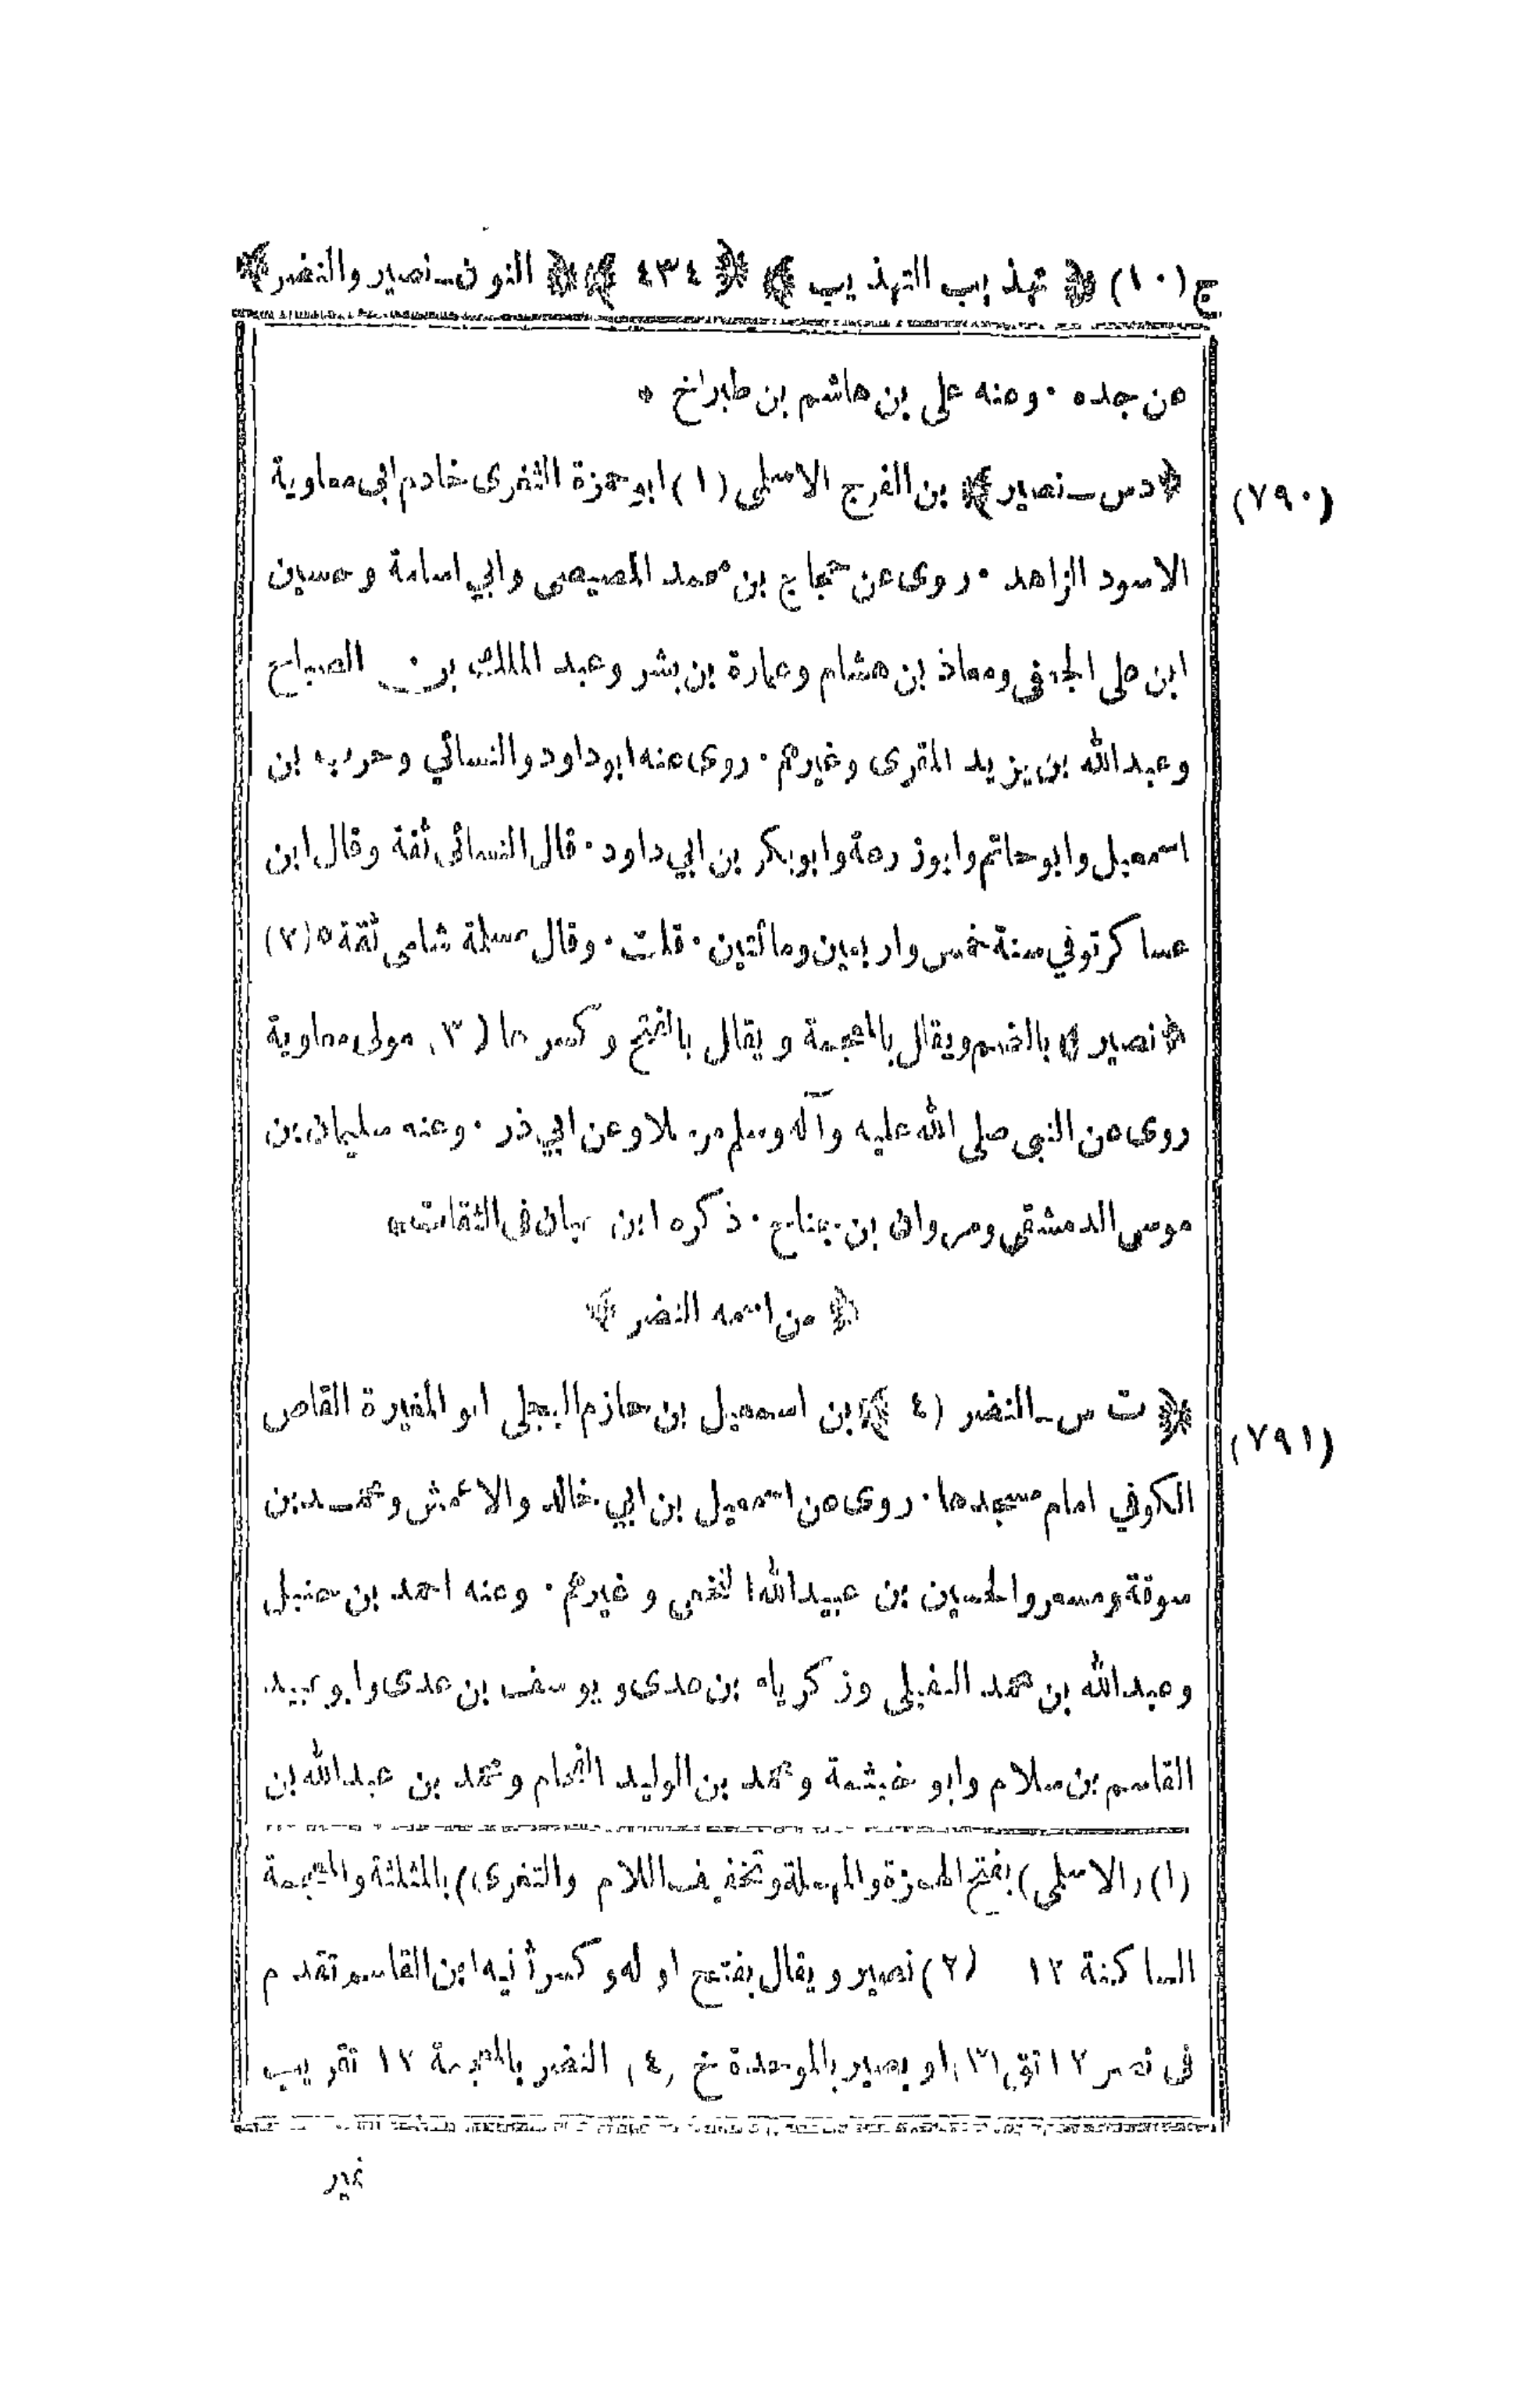 ج (١٠) ﴿ تهذيب التهذيب ﴾ ﴿ ٤٣٤ ﴾ ﴿ النون ــ نصير والنضر ﴾
عن جده ٠ وعنه على بن هاشم بن طبراخ *
(٧٩٠) ﴿ دس ــ نصير ﴾ بن الفرج الاسلمى (١) ابوحمزة الثغرى خادم ابى معاوية
الاسود الزاهد ٠ روى عن حجاج بن محمد المصيصى وابي اسامة وحسين
ابن على الجعفي ومعاذ بن هشام وعمارة بن بشر وعبد الملك بن الصباح
وعبدالله بن يزيد المقرى وغيرهم ٠ روى عنه ابوداود والنسائي وحرب بن
اسمعيل وابوحاتم وابوزرعة وابوبكر بن ابي داود ٠ قال النسائى ثقة وقال ابن
عساكر توفي سنة خمس واربعين ومائتين ٠ قلت ٠ وقال مسلمة شامى ثقة * (٢)
﴿ نصير ﴾ بالضم ويقال بالمعجمة ويقال بالفتح وكسرها (٣) مولى معاوية
روى عن النبي صلى الله عليه وآله وسلم مرسلا وعن ابي ذر ٠ وعنه سليمان بن
موسى الدمشقي ومروان بن جناح ٠ ذكره ابن حبان فى الثقات *
﴿ من اسمه النضر ﴾
(٧٩١) ﴿ ت س ــ النضر (٤) ﴾ بن اسمعيل بن حازم البجلى ابو المغيرة القاص
الكوفي امام مسجدها ٠ روى عن اسمعيل بن ابي خالد والاعمش ومحمد بن
سوقة ومسعر والحسين بن عبيدالله النخعى وغيرهم ٠ وعنه احمد بن حنبل
وعبدالله بن محمد النفيلى وزكرياء بن عدى ويوسف بن عدى وابو عبيد
القاسم بن سلام وابو خيثمة ومحمد بن الوليد الفحام ومحمد بن عبدالله بن
(١) (الاسلمى) بفتح الهمزة والمهملة وتخفيف اللام والثغرى) بالمثلثة والمعجمة
الساكنة ١٢ (٢) نصير ويقال بفتح اوله وكسر ثانيه ابن القاسم تقدم
فى نصر ١٢ تق (٣) او بصير بالموحدة خ (٤) النضر بالمعجمة ١٢ تقريب
غير